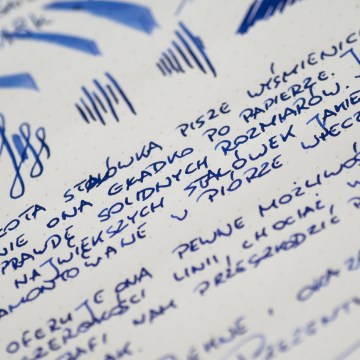 ZŁOTA STALÓWKA PISZE WYŚMIENICI
NIE ONA GŁADKO PO PAPIERZE.
PRAWDĘ SOLIDNYCH ROZMIARÓW.
NAJWIĘKSZYCH STALÓWEK JAKIE
AMONTOWANE W PIÓRZE WIECZ
OFERUJE ONA PEWNE MOŻLIWO
ZEROKOŚCI LINII, CHOCIAŻ, W
RAFI NAM PRZESZKODZIĆ
AK.